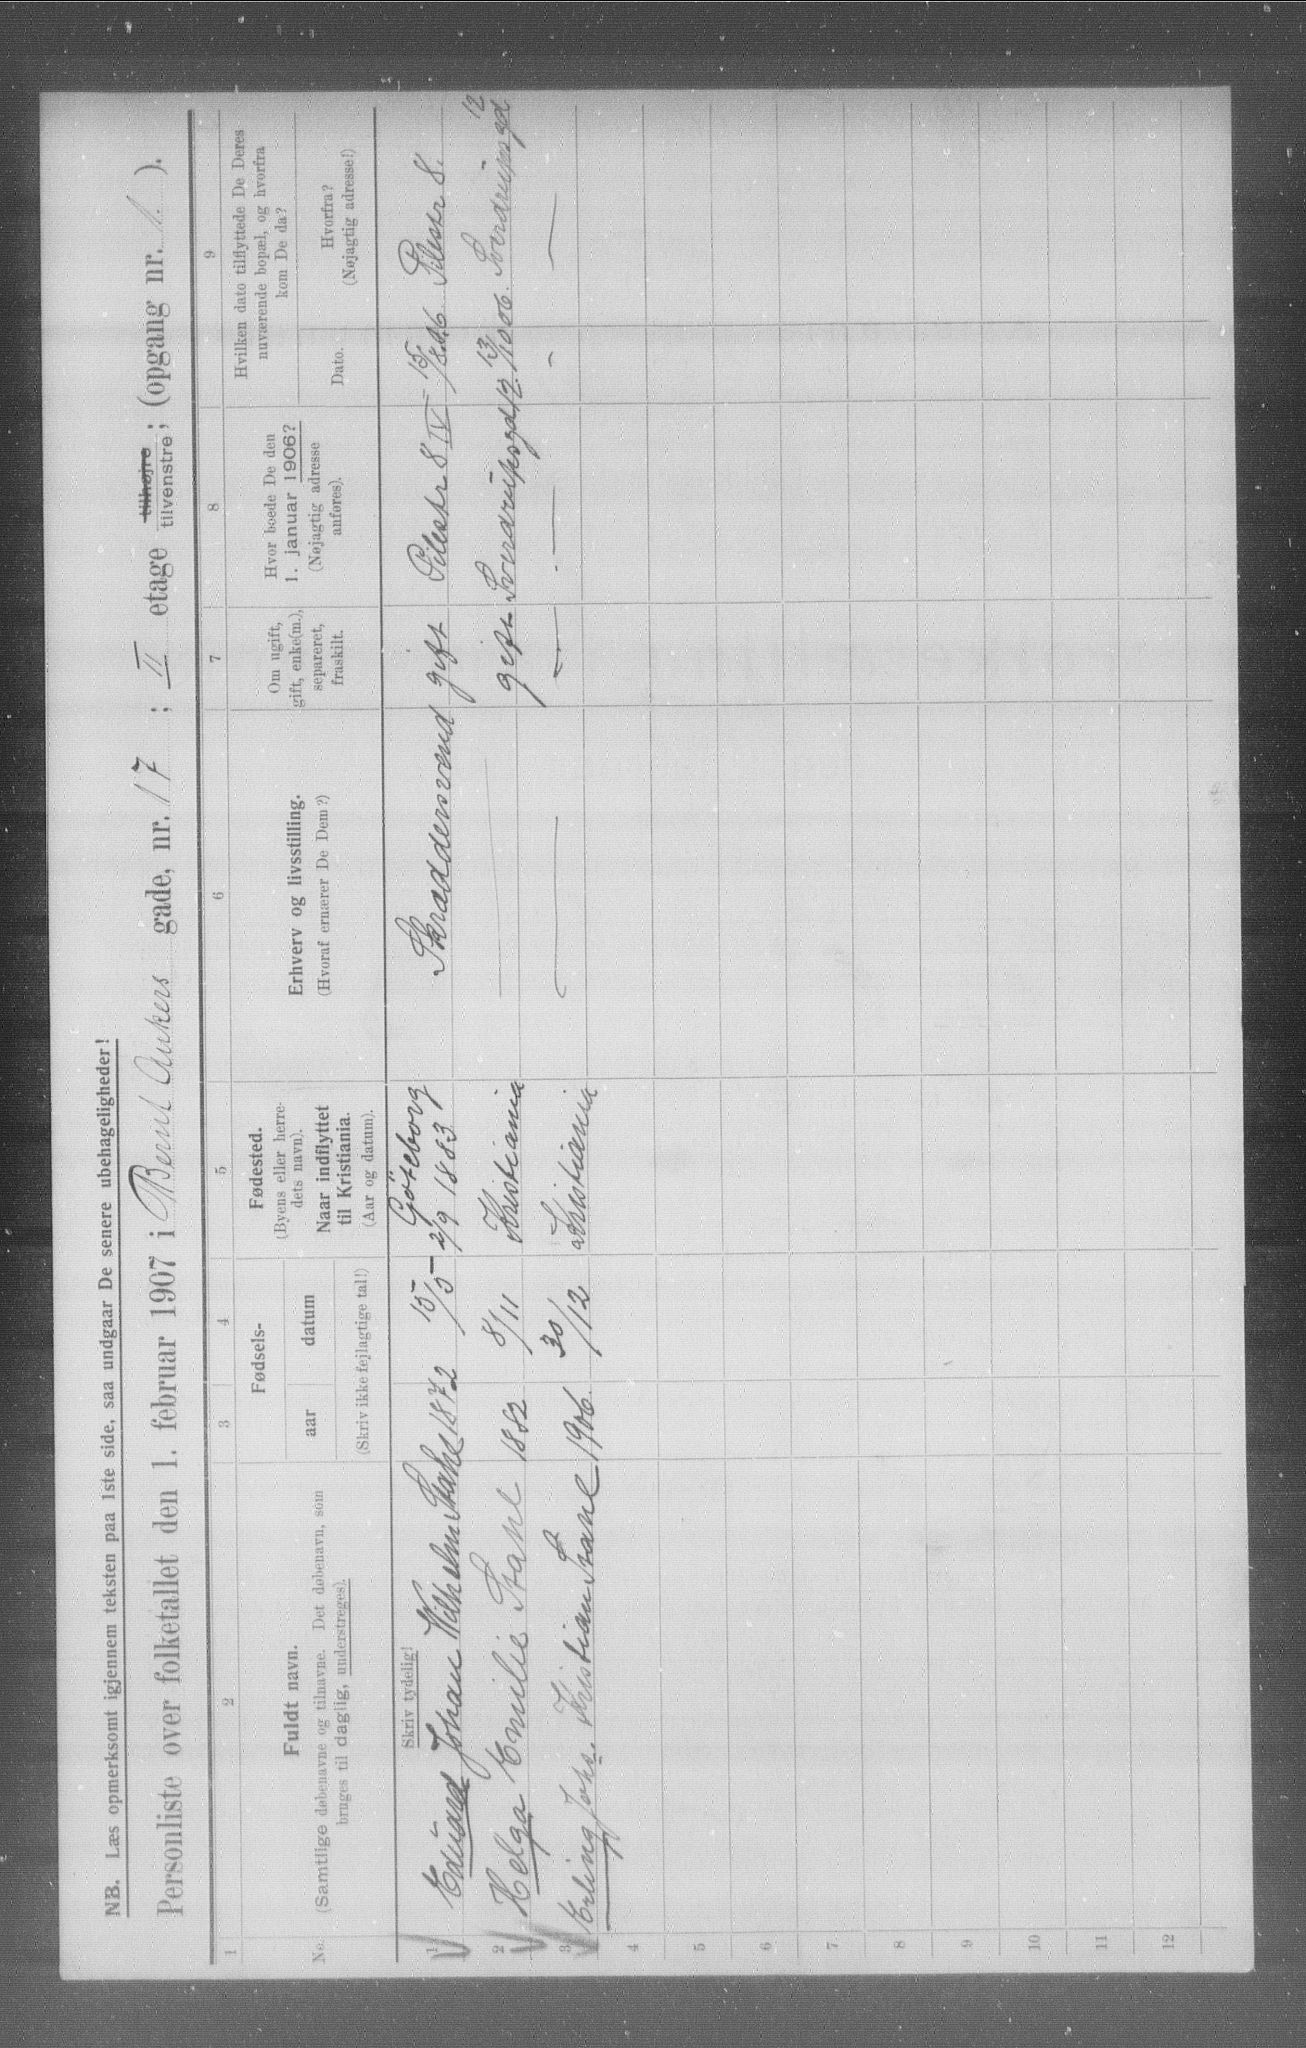 NB. Læs opmerksomt igjennem teksten paa 1ste side, saa undgaar De senere ubehageligheder!
Personliste over folketallet den 1. februar 1907 i Bernt Ankers gade, nr. 17 ; II etage tilhøjre tilvenstre; (opgang nr. 1 ).
1 2 3 4 5 6 7 8 9
No.
Fuldt navn.
(Samtlige døbenavne og tilnavne. Det døbenavn, som
bruges til daglig, understreges).
Fødsels-
aar datum
(Skriv ikke fejlagtige tal!)
Fødested.
(Byens eller herre-
dets navn).
Naar indflyttet
til Kristiania.
(Aar og datum).
Erhverv og livsstilling.
(Hvoraf ernærer De Dem?)
Om ugift,
gift, enke(m.),
separeret,
fraskilt.
Hvor boede De den
1. januar 1906?
(Nøjagtig adresse
anføres).
Hvilken dato tilflyttede De Deres
nuværende bopæl, og hvorfra
kom De da?
Dato.
Hvorfra?
(Nøjagtig adresse!)
Skriv tydelig!
1 Eduard Johan Wilhelm Stahl 1872 15/5 Göteborg 2/9 1883 Skræddersvend gift Pilestr 8 IV 15/8.06 Pilestr 8.
2 Helga Emilie Stahl 1882 8/11 Kristiania — gift Sverdrupsgd 12 13/10 06. Sverdrupsgd 12
3 Erling Johs. Kristian Stahl 1906. 30/12 Kristiania — — — - —
4
5
6
7
8
9
10
11
12